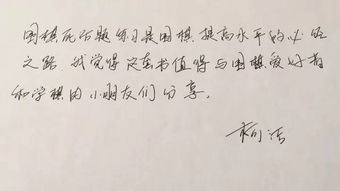 围棋死活题练习是围棋提高水平的必经
之路。我觉得这本书值得与围棋爱好者
和学棋的小朋友们分享。
柯洁